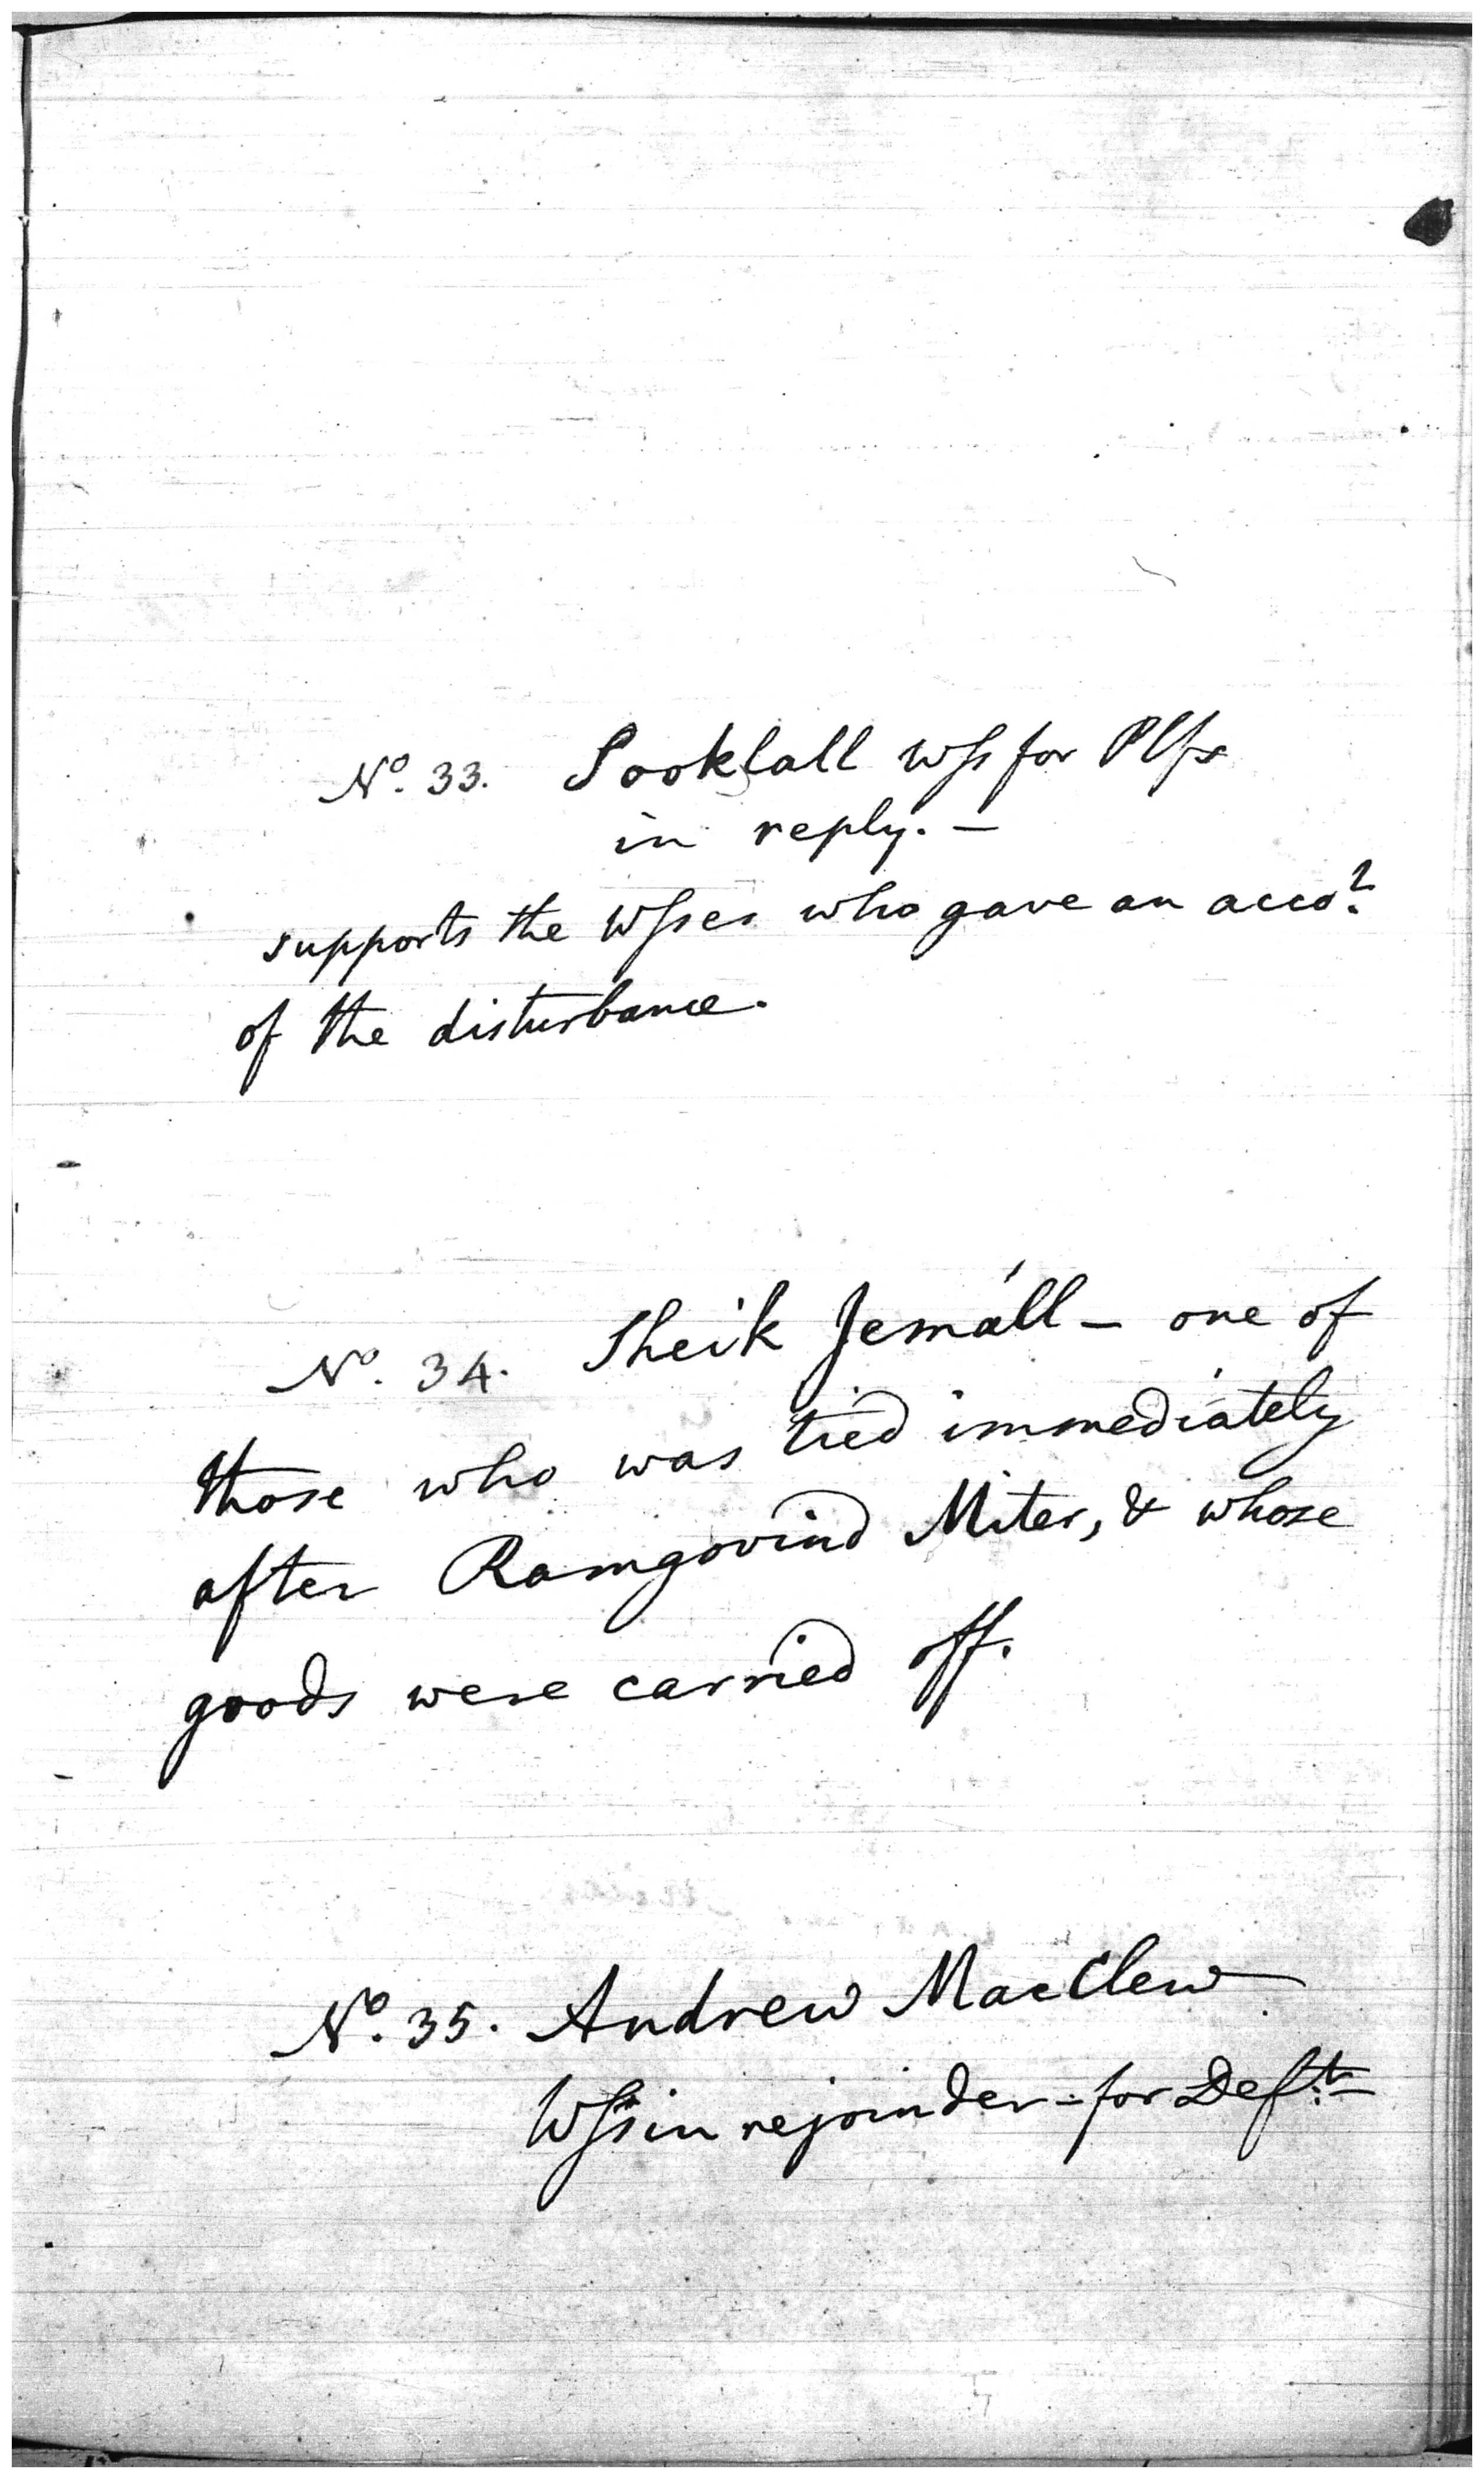 No. 33. Sooklall Wss for Plfs
in reply. —
supports the Wsses who gave an accot.
of the disturbance.
No. 34. Sheik Jemáll — one of
those who was tied immediately
after Ramgovind Miter, & whose
goods were carried off.
No. 35. Andrew MacClew
Wss in rejoinder - for Defts.